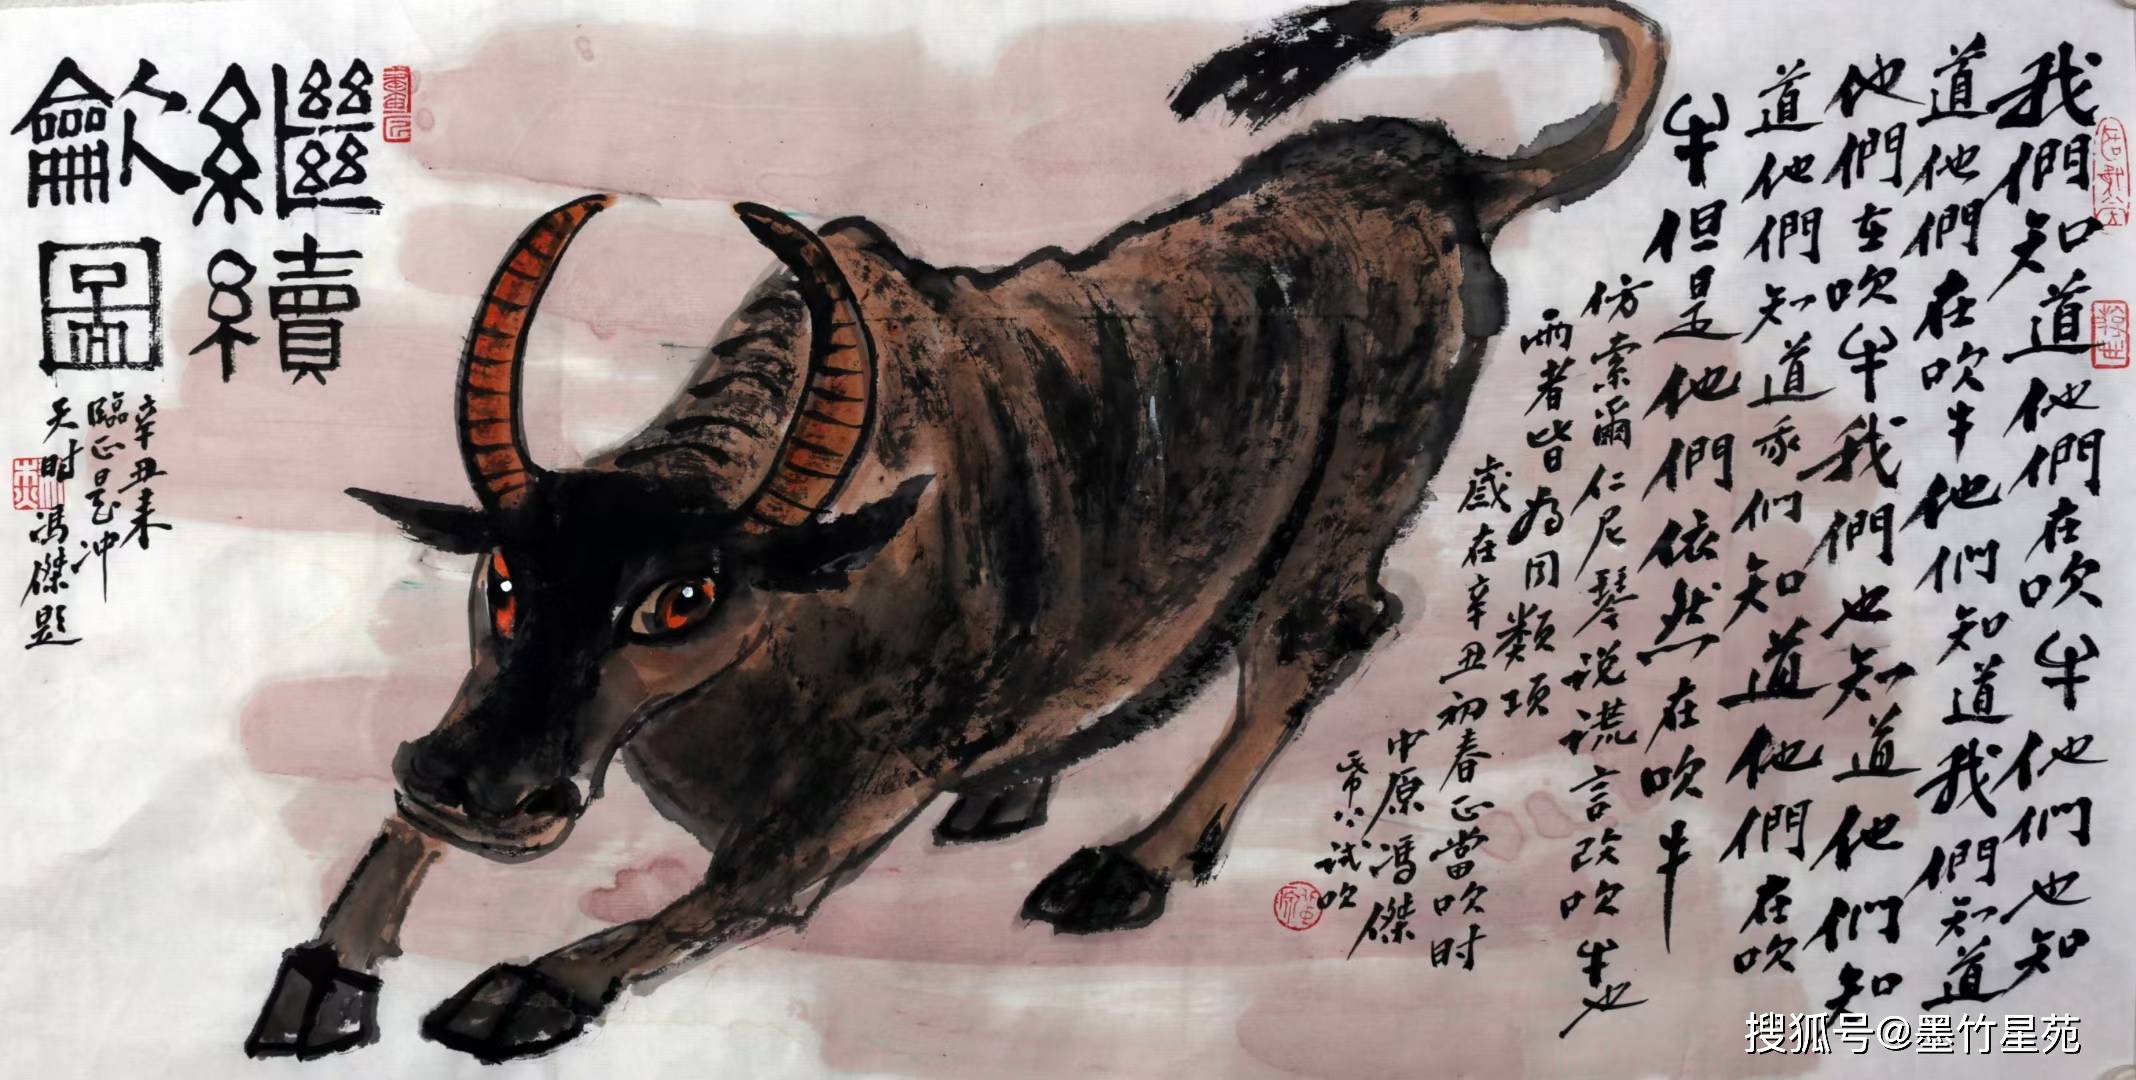 我們知道他們在吹牛他们也知
道他們在吹牛他们知道我們知道
他們在吹牛我們也知道他们知
道他們知道我们知道他們在吹
牛但是他們依然在吹牛
仿索爾仁尼琴说谎言改吹牛也
兩者皆為同類項
歲在辛丑初春正當吹时
中原馮傑
试吹
繼續
龡圖
辛丑来
臨正是冲
天时馮傑题
搜狐号@墨竹星苑